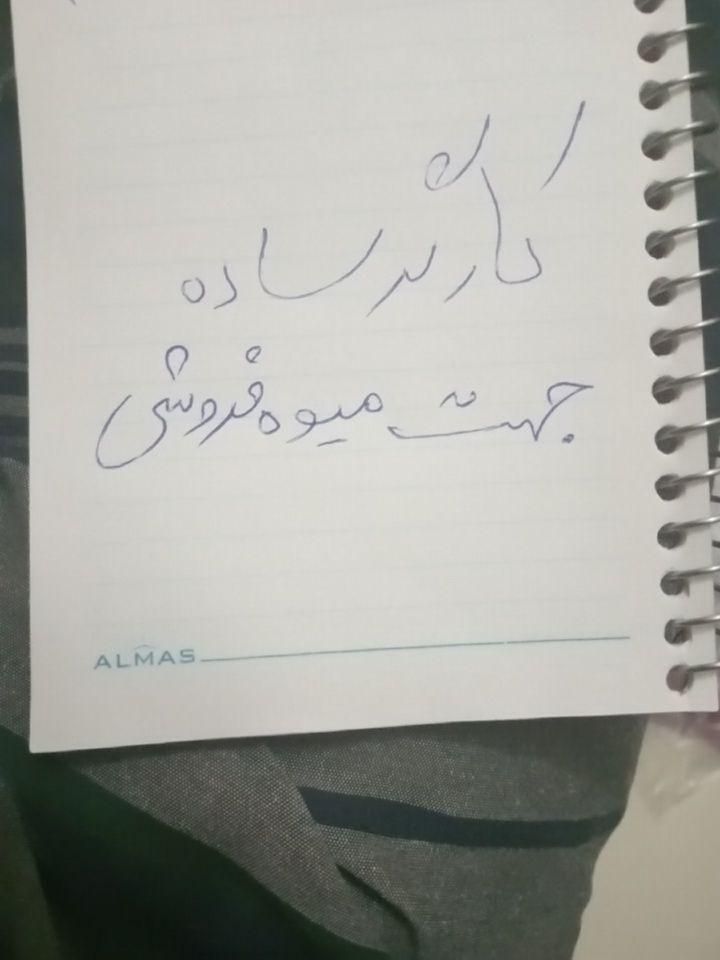 کارگر ساده
جهت میوه فروشی
ALMAS